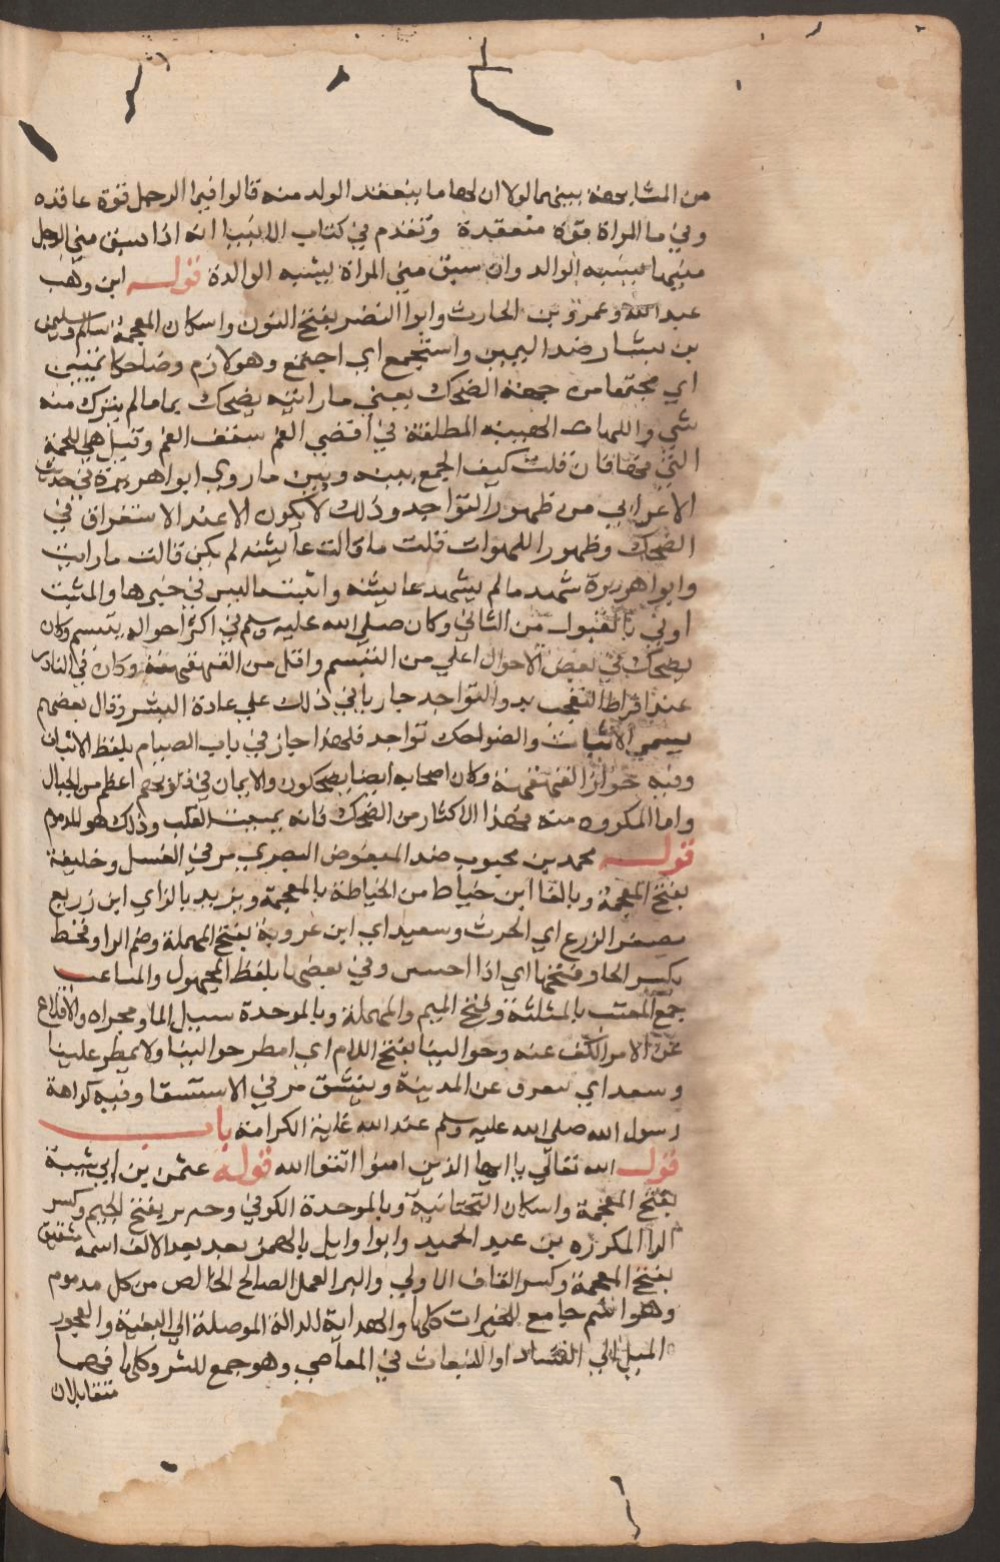 من المشابهة بينهما لولا ان لها ما ينعقد الولد منه قالوا في ما الرجل قوة عاقده
وفي ما المراة قوة منعقدة وتقدم في كتاب الانبيا انه اذا سبق مني الرجل
منيها يشبه الوالد وان سبق مني المراة يشبه الوالدة قوله ابن وهب
عبد الله وعمرو بن الحارث وابوا النضر بفتح النون واسكان المعجمة سالم وسليمن
بن يسار ضد اليمين واستجمع اي اجتمع وهو لازم وضاحكا تمييز
اي مجتمعا من جهة الضحك يعني ما رايته يضحك تماما لم يترك منه
شي واللهات الهبينه المطلقة في اقصي الفم سقف الفم وقيل هي اللحمة
التي فان قلت كيف الجمع بينه وبين ما روي ابوا هريرة في حديث
الاعرابي من ظهور النواجد وذلك لا يكون الا عند الاستغراق في
الضحك وظهور اللهوات قلت ما قالت عايشه لم يكن قالت ما رايت
وابوا هريرة شهد ما لم يشهد عايشه واثبت ما ليس في خبرها والمثبت
اولي بالقبول من الثاني وكان صلي الله عليه وسلم في اكثر احواله يتبسم وكان
يضحك في بعض الاحوال اعلي من التبسم واقل من القهقهة وكان في النادر
عند افراط التعجب بدو النواجد جاريا في ذلك علي عادة البشر وقال بعضهم
يسمي الانياب والضواحك نواجد فلهذا جاز في باب الصيام بلفظ الانياب
وفيه جواز القهقهة وكان اصحابه ايضا يضحكون والايمان في قلوبهم اعظم من الجبال
واما المكروه منه فهذا الاكثار من الضحك فانه يميت القلب وذلك هو المدموم
قوله محمد بن محبوب ضد المبغوض البصري مر في الغسل وخليفة
بفتح المعجمة وبالفا ابن خياط من الخياطة بالمعجمة ويزيد بالزاي ابن زريع
مصغر الزرع اي الحرث وسعيد اي ابن عروبة بفتح المهملة وضم الرا وقحط
بكسر الحا وفتحها اي اذا احتبس وفي بعضها بلفظ المجهول والمثاعب
جمع المثعب بالمثلثة وفتح الميم والمهملة وبالموحدة سيل الما ومجراه والاقلاع
عن الامر الكف عنه وحوالينا بفتح اللام اي امطر حوالينا ولا يمطر علينا
و اي تتعرق عن المدينة وينشق مر في الاستسقا وفيه كراهة
رسول الله صلي الله عليه وسلم عند الله غاية الكرامة باب
قول الله تعالي يا ايها الذين امنوا اتقوا الله قوله عثمن بن ابي شيبة
بفتح المعجمة واسكان التحتانية وبالموحدة الكوفي وجرير بفتح الجيم وكسر
الرا المكرره بن عبد الحميد وابوا وايل بالهمز بعد بعد الالف اسمه شقيق
بفتح المعجمة وكسر القاف الاولي والبر العمل الصالح الخالص من كل مدموم
وهو اسم جامع للخيرات كلها والهداية للدالة الموصلة الي البغية والفجور
الميل الي الفساد او الانبعاث في المعاصي وهو جمع للشر وكلها فهما
متقابلان